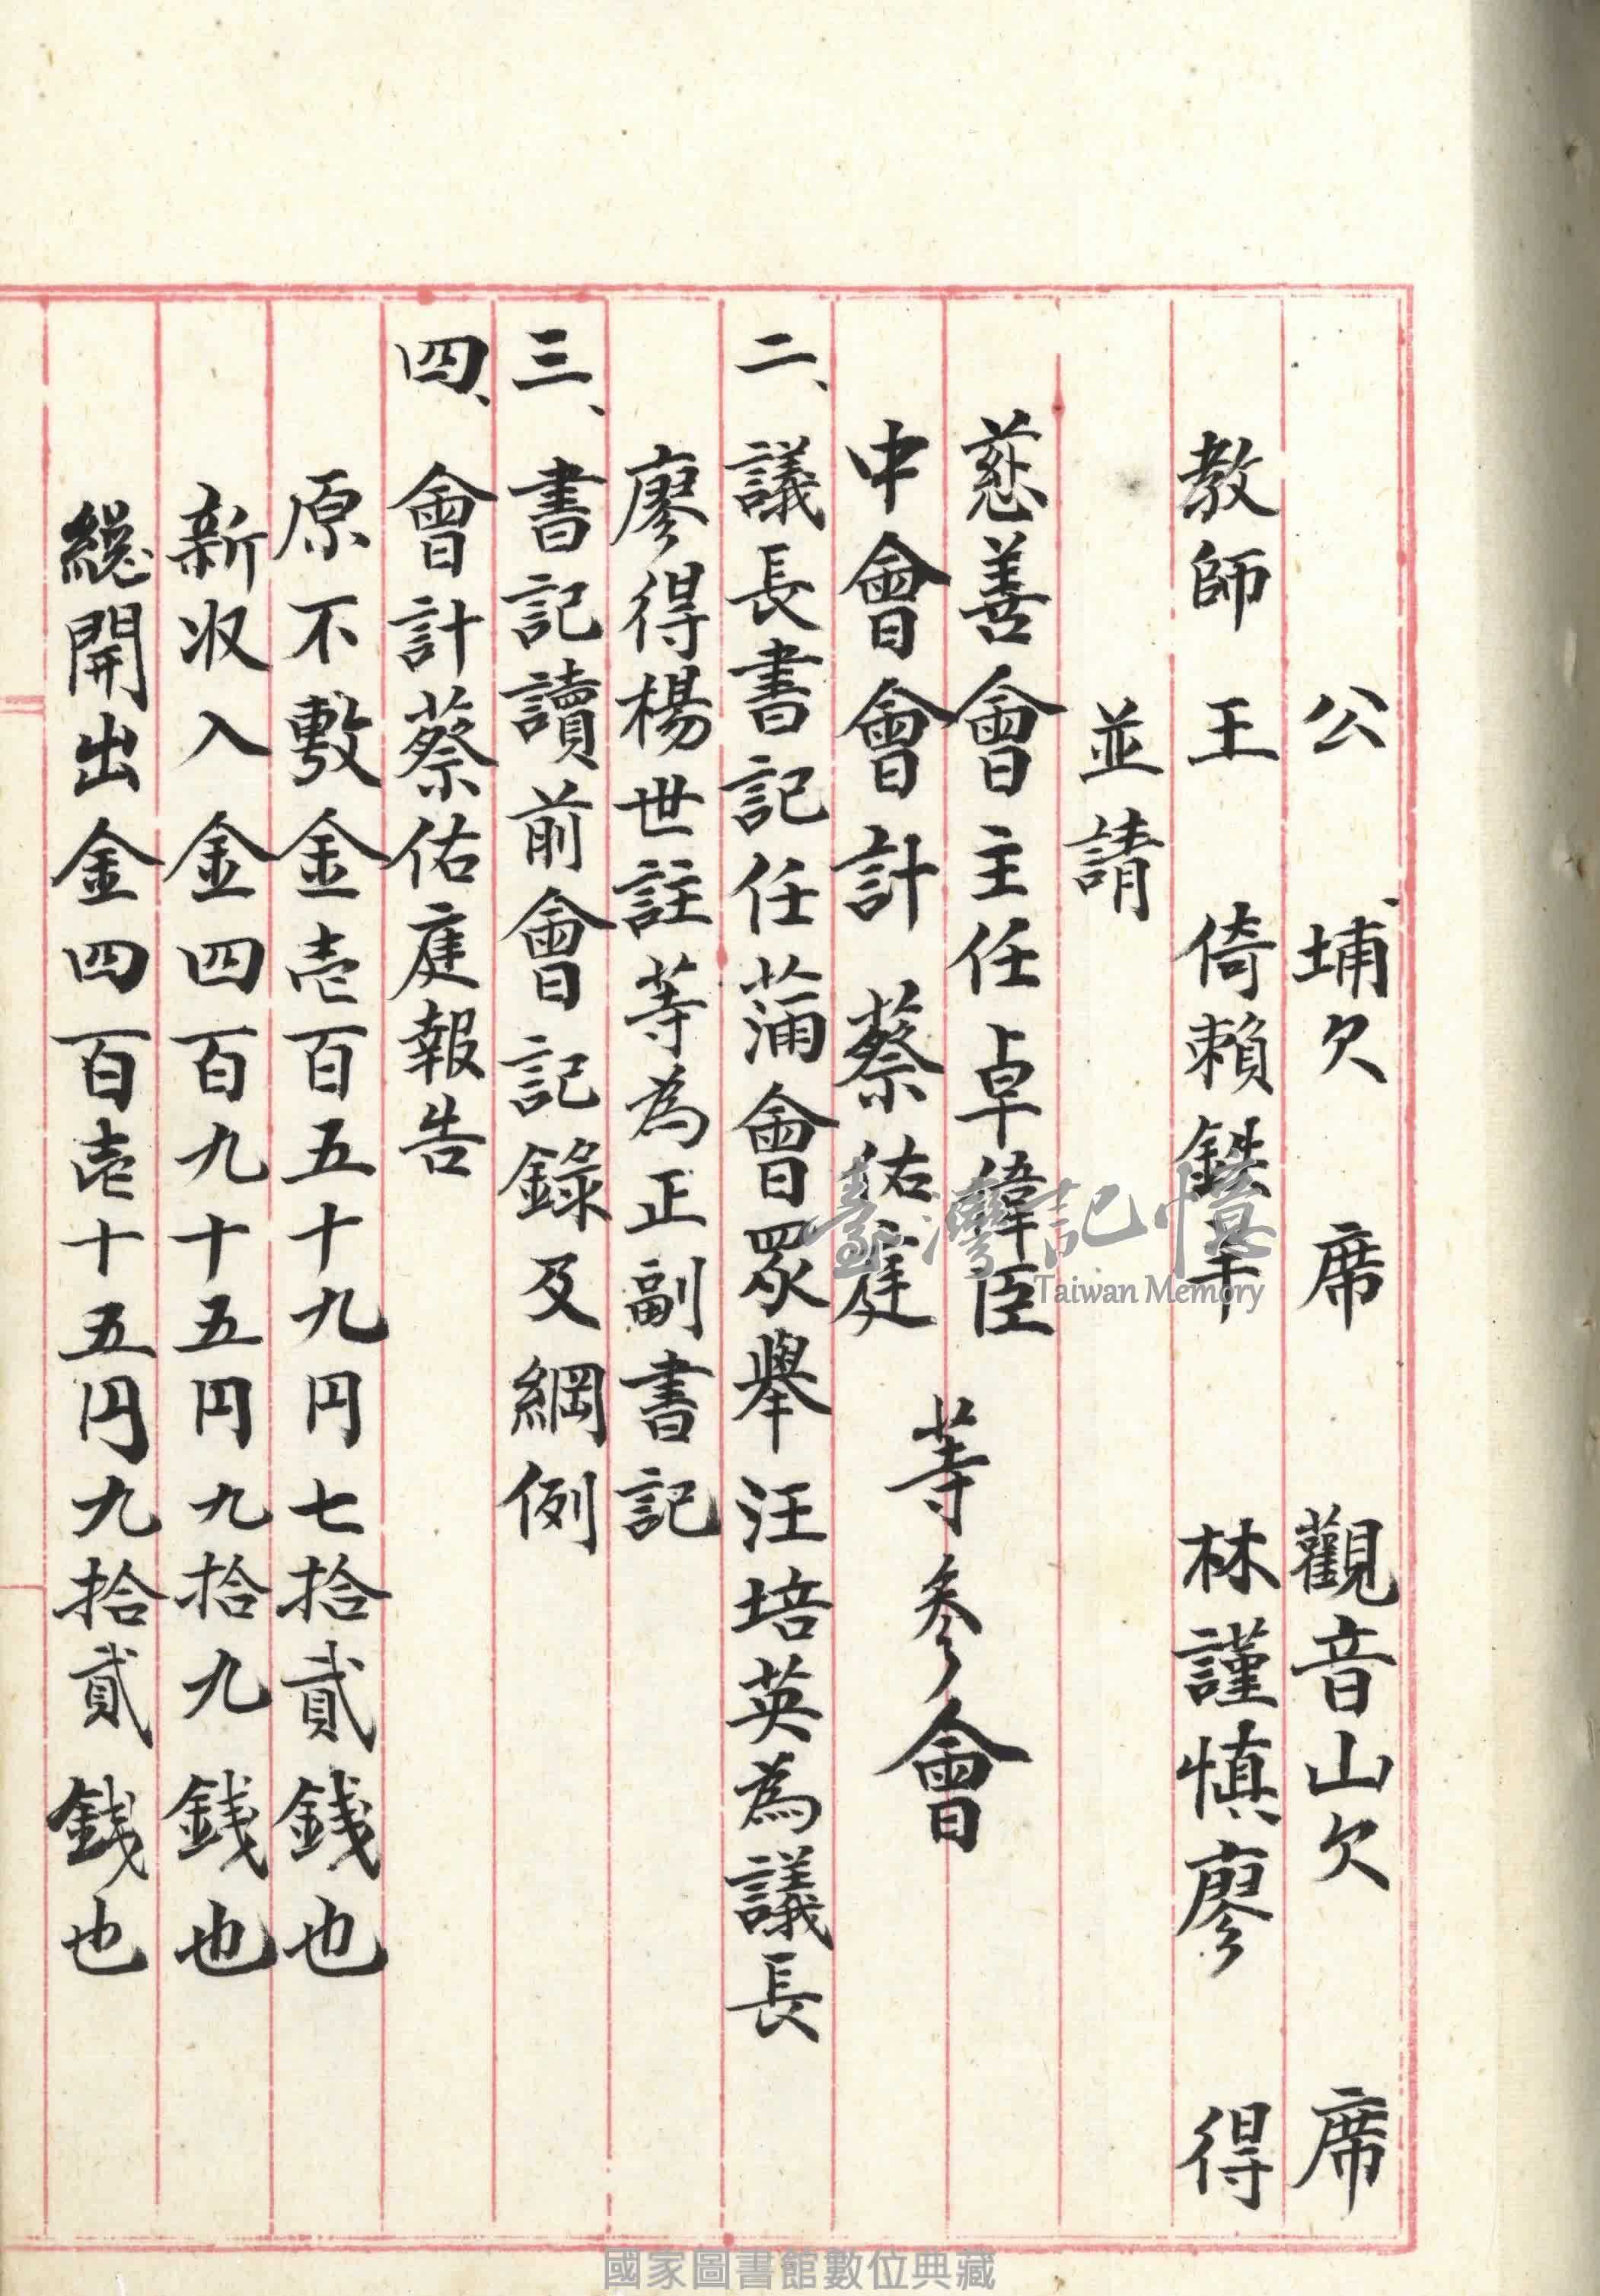 公埔欠　席　觀音山欠　席
教師　王　倚　賴鋕丰　林謹慎　廖　得
並請
慈善會主任卓諱臣
中會會計　蔡佑庭
等參會
二、議長書記任蒲會眾舉汪培英為議長
廖得楊世註等為正副書記
三、書記讀前會記錄及綱例
四、會計蔡佑庭報告
原不敷金壱百五十九円七拾貳銭也
新收入金四百九十五円九拾九銭也
総開出金四百壱十五円九拾貳銭也
臺灣記憶
Taiwan Memory
國家圖書館數位典藏